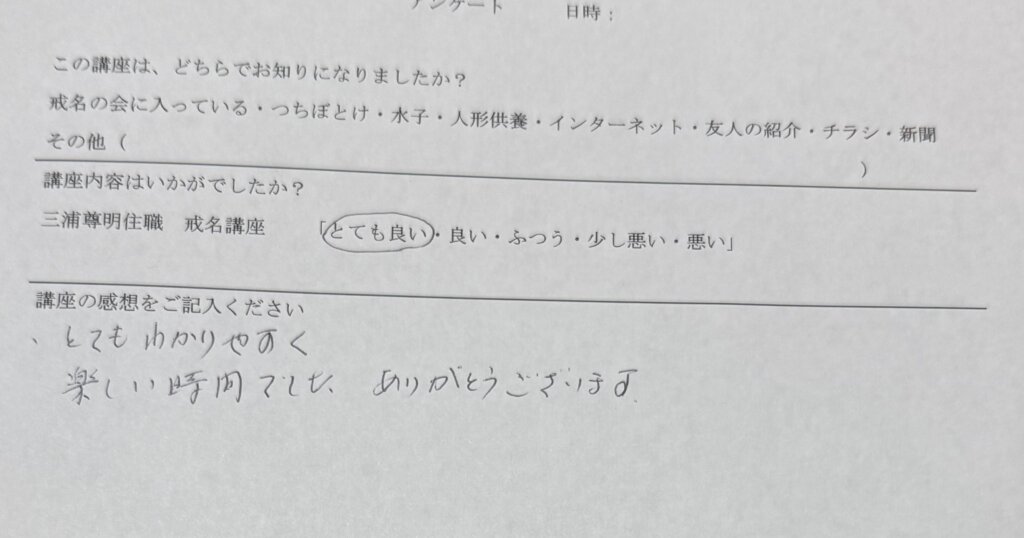 アンケート　　日時：
この講座は、どちらでお知りになりましたか？
戒名の会に入っている・つちぼとけ・水子・人形供養・インターネット・友人の紹介・チラシ・新聞
その他（　　　　　　　　　　）
講座内容はいかがでしたか？
三浦尊明住職　戒名講座　　「とても良い・良い・ふつう・少し悪い・悪い」
講座の感想をご記入ください
、とてもわかりやすく
楽しい時間でした、ありがとうございます.